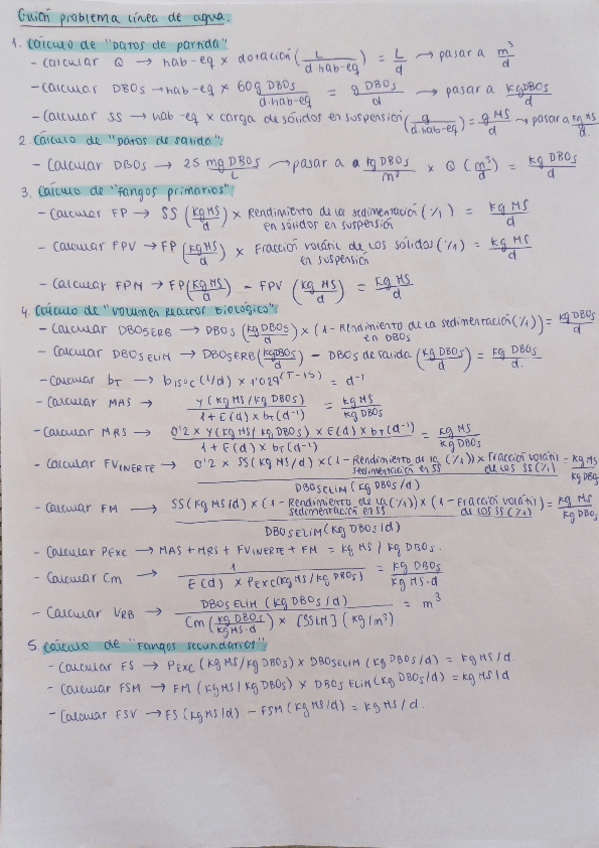 Guión problema línea de agua.
1. Cálculo de "Datos de partida":
- Calcular Q → hab-eq × dotación (L/d·hab-eq) = L/d → pasar a m³/d
- Calcular DBO5 → hab-eq × 60 g DBO5/d·hab-eq = g DBO5/d → pasar a kg DBO5/d
- Calcular SS → hab-eq × carga de sólidos en suspensión (g/d·hab-eq) = g MS/d → pasar a kg MS/d
2. Cálculo de "Datos de salida":
- Calcular DBO5 → 25 mg DBO5/L → pasar a a kg DBO5/m³ × Q (m³/d) = kg DBO5/d
3. Cálculo de "Fangos primarios":
- Calcular FP → SS (kg MS/d) × Rendimiento de la sedimentación (%1) = kg MS/d
en sólidos en suspensión
- Calcular FPV → FP (kg MS/d) × Fracción volátil de los sólidos (%1) = kg MS/d
en suspensión
- Calcular FPM → FP (kg MS/d) - FPV (kg MS/d) = kg MS/d
4. Cálculo de "Volumen Reactor Biológico":
- Calcular DBO5ERB → DBO5 (kg DBO5/d) × (1 - Rendimiento de la sedimentación (%1)) = kg DBO5/d
en DBO5
- Calcular DBO5ELIM → DBO5ERB (kg DBO5/d) - DBO5 de salida (kg DBO5/d) = kg DBO5/d.
- Calcular bT → b15ºC (1/d) × 1'029^(T-15) = d⁻¹
- Calcular MAS → Y (kg MS/kg DBO5) / 1 + E(d) × bT (d⁻¹) = kg MS/kg DBO5
- Calcular MRS → 0'2 × Y (kg MS/kg DBO5) × E(d) × bT (d⁻¹) / 1 + E(d) × bT (d⁻¹) = kg MS/kg DBO5
- Calcular FVINERTE → 0'2 × SS (kg MS/d) × (1 - Rendimiento de la sedimentación en SS (%1)) × Fracción volátil de los SS (%1) / DBO5ELIM (kg DBO5/d) = kg MS/kg DBO5
- Calcular FM → SS (kg MS/d) × (1 - Rendimiento de la sedimentación en SS (%1)) × (1 - Fracción volátil de los SS (%1)) / DBO5ELIM (kg DBO5/d) = kg MS/kg DBO5
- Calcular PEXC → MAS + MRS + FVINERTE + FM = kg MS / kg DBO5.
- Calcular Cm → 1 / E(d) × PEXC (kg MS/kg DBO5) = kg DBO5/kg MS·d
- Calcular VRB → DBO5ELIM (kg DBO5/d) / Cm (kg DBO5/kg MS·d) × [SSLM] (kg/m³) = m³
5. Cálculo de "Fangos secundarios":
- Calcular FS → PEXC (kg MS/kg DBO5) × DBO5ELIM (kg DBO5/d) = kg MS/d.
- Calcular FSM → FM (kg MS/kg DBO5) × DBO5ELIM (kg DBO5/d) = kg MS/d
- Calcular FSV → FS (kg MS/d) - FSM (kg MS/d) = kg MS/d.